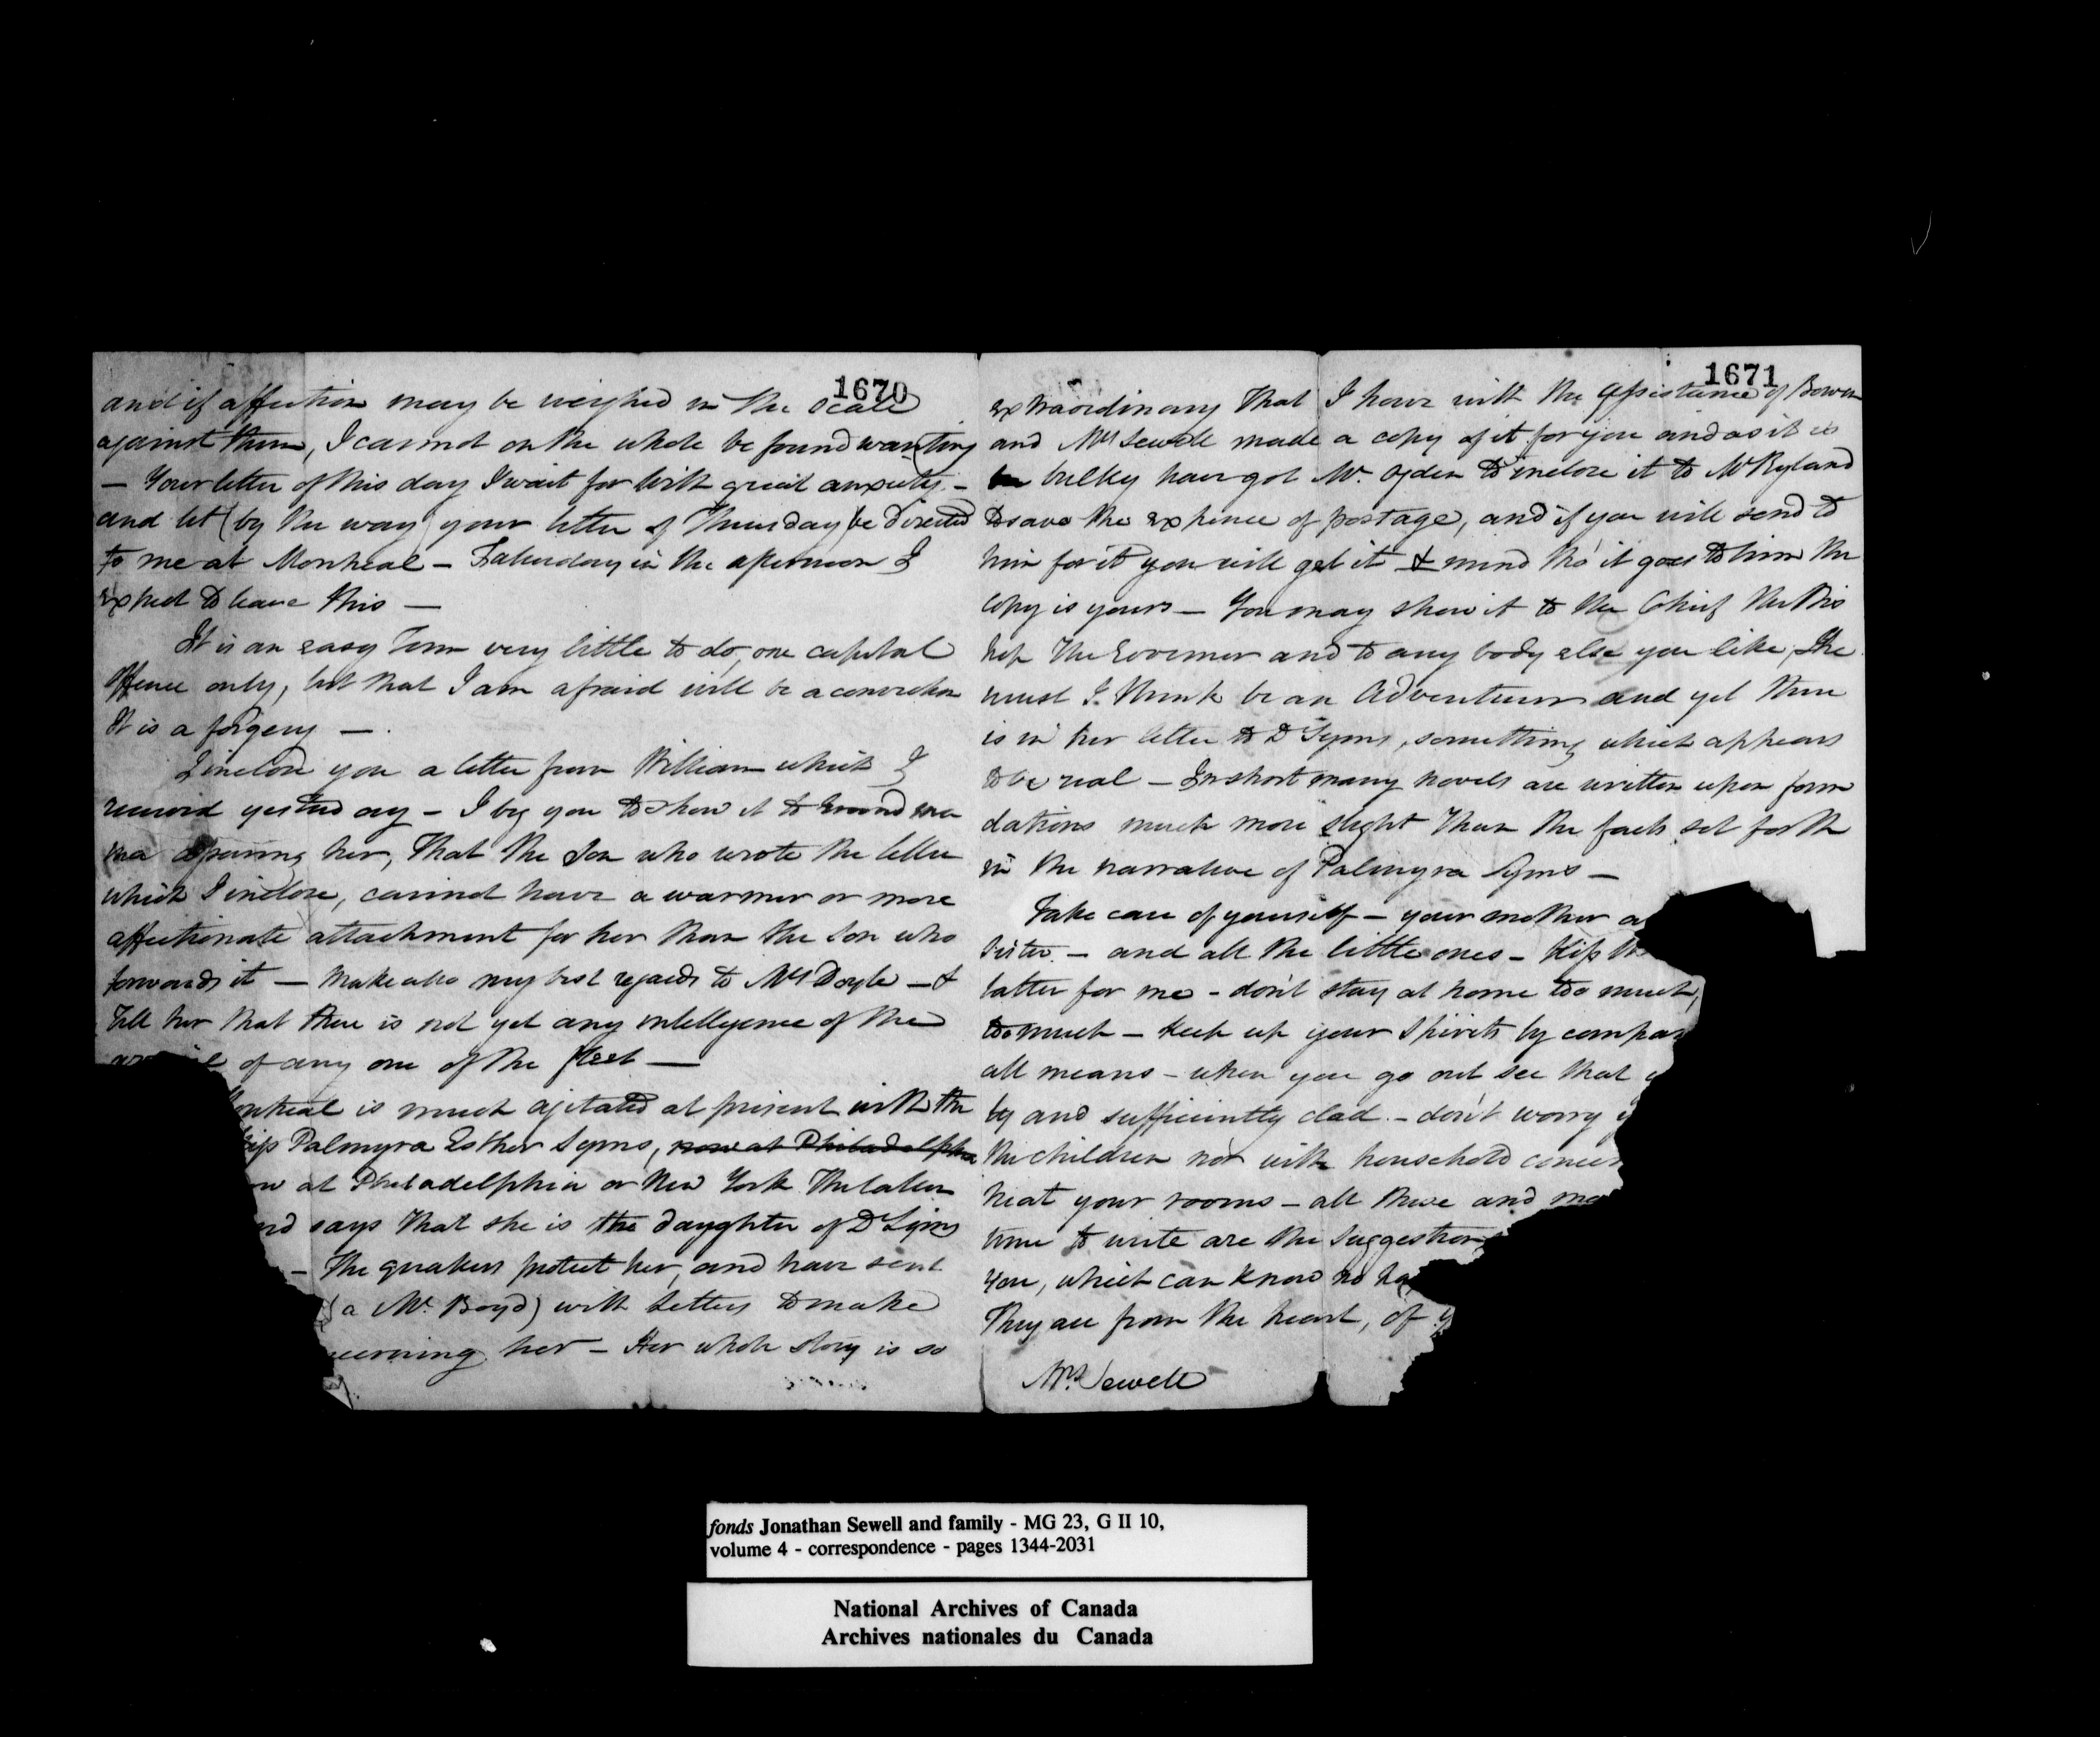 1670
and if affection may be weighed in the scale
against them, I cannot on the whole be found wanting
— Your letter of this day I wait for with great anxiety —
and let (by the way) your letter of Thursday be directed
to me at Montreal — Saturday in the afternoon I
expect to leave this —
It is an easy Term very little to do, one capital
Offence only, but that I am afraid will be a conviction
It is a forgery —
I inclose you a letter from William which I
received yesterday — I beg you to show it to Grand ma
ma assuring her, That the Son who wrote the letter
which I inclose, cannot have a warmer or more
affectionate attachment for her than the Son who
forwards it — make also my best regards to Mrs Doyle — &
Tell her that there is not yet any intelligence of the
of any one of the fleet —
is much agitated at present with the
Palmyra Esther Syms, now at Philadelphia
at Philadelphia or New York The latter
says that she is the daughter of Dr Syms
— The quakers protect her, and have sent
(a Mr. Boyd) with letters to make
her — Her whole story is so
1671
extraordinary That I have with the assistance of Bowen
and Mrs Sewell made a copy of it for you and as it is
bulky have got Mr. Ogden to inclose it to Mr Ryland
to save the expence of postage, and if you will send to
him for it you will get it & mind tho' it goes to him the
copy is yours — You may show it to the Chief the Bis
hop The Governor and to any body else you like, She
must I think be an Adventurer and yet there
is in her letter to Dr Syms, something which appears
to be real — In short many novels are written upon foun
dations much more slight than the facts set forth
in the narrative of Palmyra Syms —
Take care of yourself — your mother a
Sister — and all the little ones — Kiss the
latter for me — don't stay at home too much,
too much — Keep up your Spirits by compan
all means — when you go out see that y
and sufficiently clad — don't worry y
the children nor with household concer
heat your rooms — all these and mo
time to write are the suggestions
You, which can know no
They are from the heart, of y
Mrs. Sewell
fonds Jonathan Sewell and family - MG 23, G II 10,
volume 4 - correspondence - pages 1344-2031
National Archives of Canada
Archives nationales du Canada